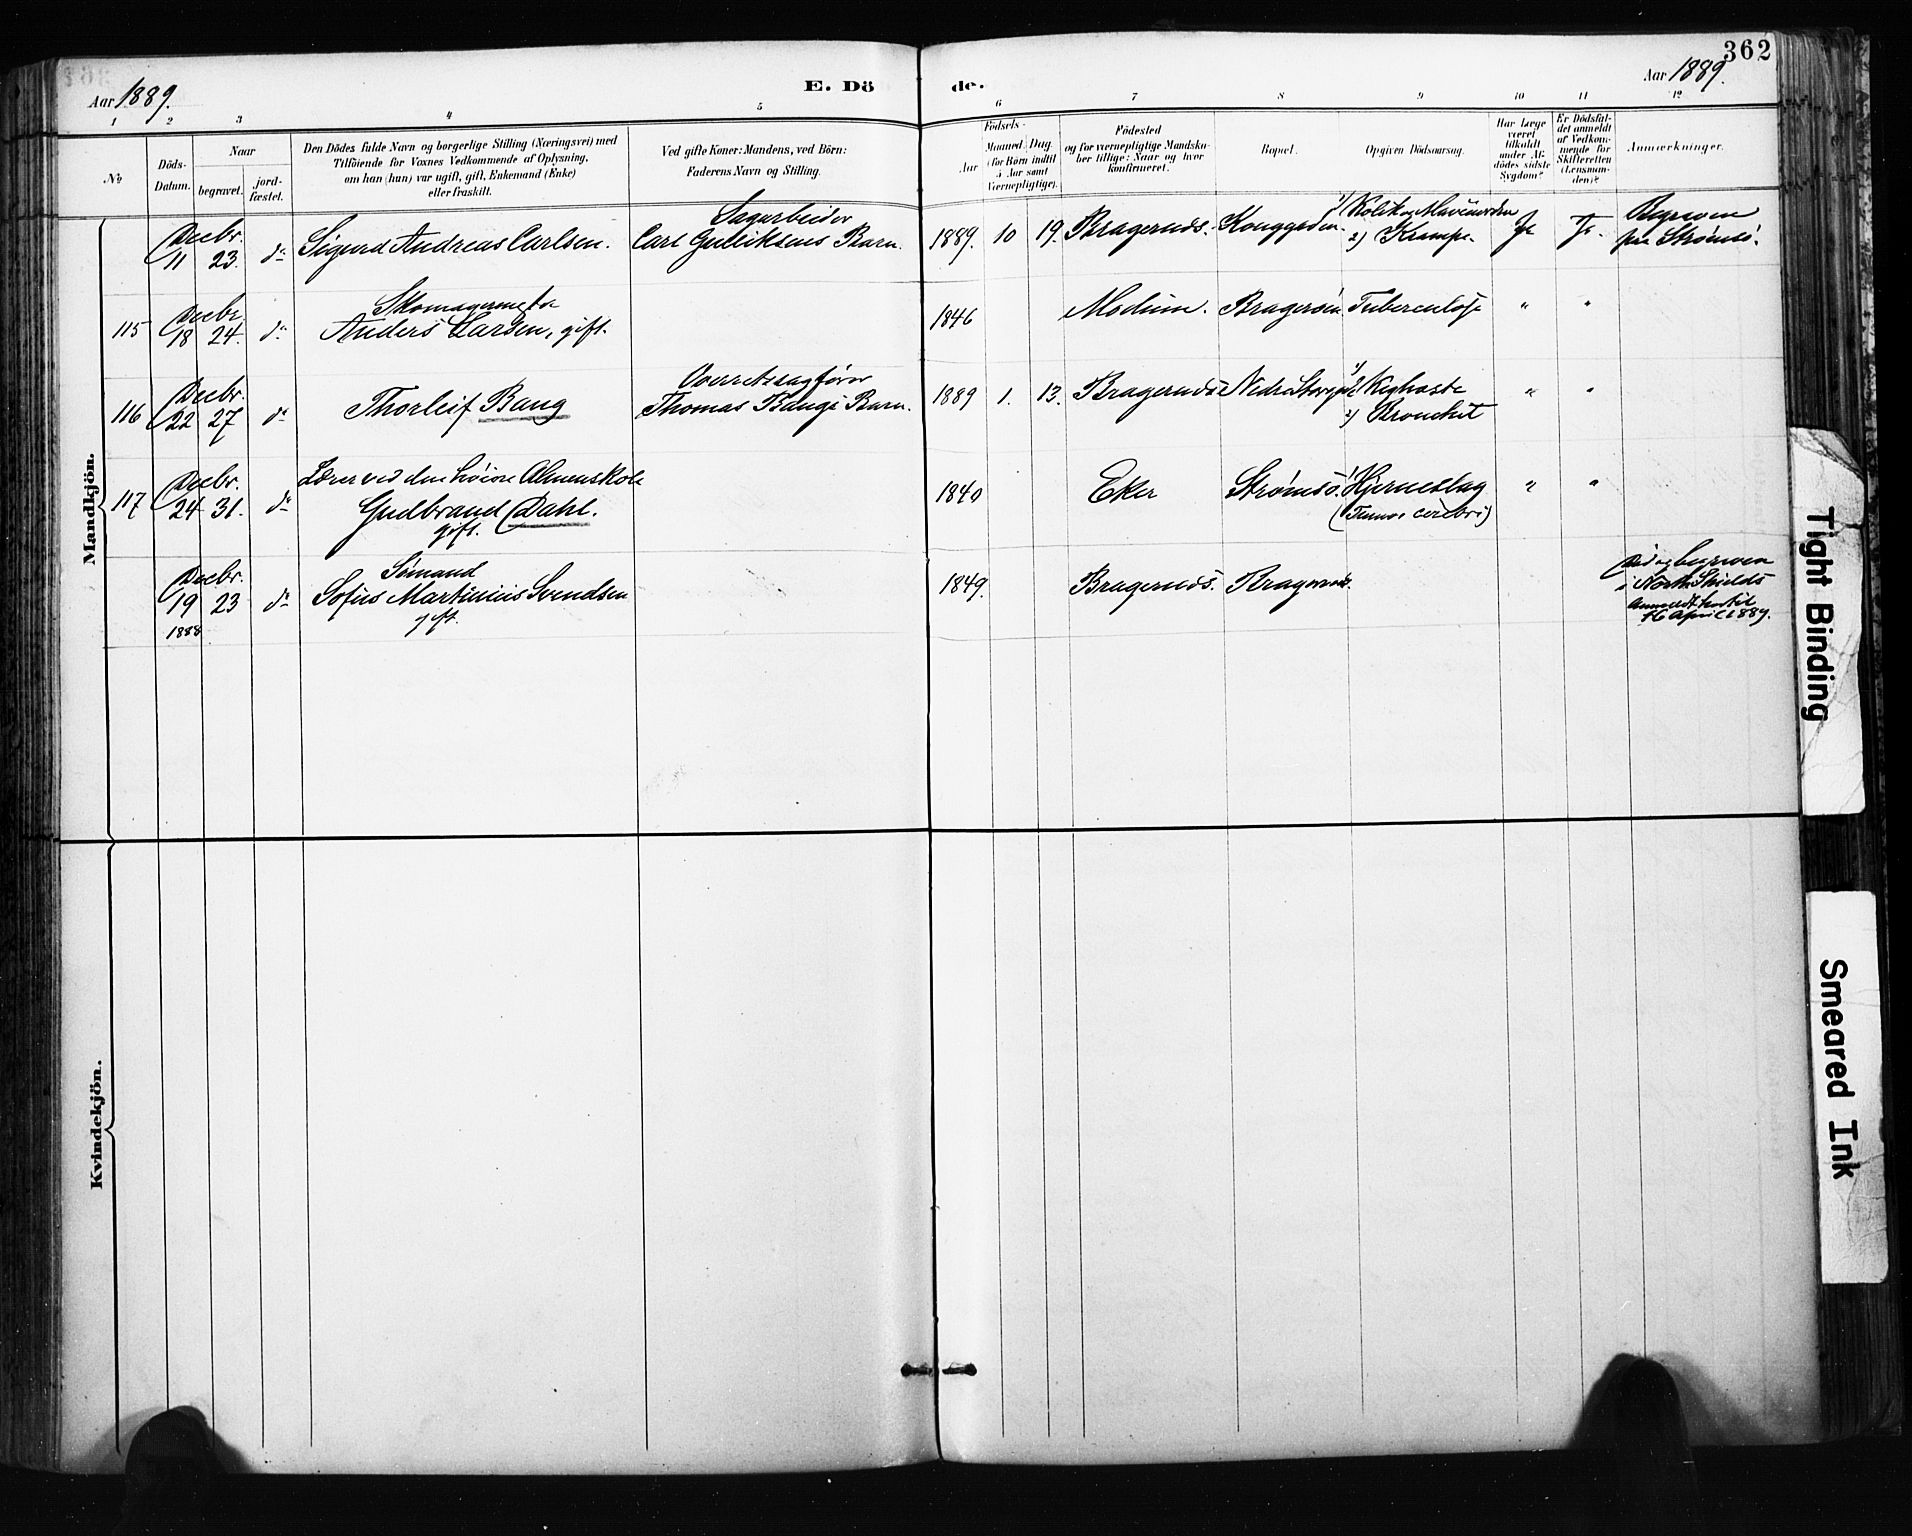 362
Aar 1889.
E. Dö
de.
Aar 1889.
1 2 3 4 5 6 7 8 9 10 11 12
No
Döds-
Datum.
Naar
begravet.
jord-
fæstet.
Den Dödes fulde Navn og borgerlige Stilling (Næringsvei) med
Tilföiende for Voxnes Vedkommende af Oplysning,
om han (hun) var ugift, gift, Enkemand (Enke)
eller fraskilt.
Ved gifte Koner: Mandens, ved Börn:
Faderens Navn og Stilling.
Födsels-
Aar
Maaned
Dag
(for Börn indtil
5 Aar samt
Værnepligtige).
Födested
og for værnepligtige Mandskaber tillige: Naar og hvor
konfirmeret.
Bopæl.
Opgiven Dödsaarsag.
Har Læge
været
tilkaldt
under Afdödes sidste
Sygdom?
Er Dödsfaldet anmeldt
af Vedkommende for
Skifteretten
(Lensmanden)?
Anmærkninger.
Mandkjön.
Decbr.
11 23. do Sigurd Andreas Carlsen.
Sagarbeider
Carl Gulliksens Barn.
1889. 10 19. Bragernæs.
1)
2) Krampe.
Ja Ja.
Begraven
paa Strømsö.
115
Decbr.
18 24. do
Anders Larsen, gift.
1846 Modum. Bragerøen Tuberculose " "
116
Decbr.
22 27 do Thorleif Bang
Overretssagfører
Thomas Bangs Barn.
1889 1. 13. Bragernæs
1) Kighoste
2) Bronchit
" "
117
Decbr.
24 31. do
Lærer ved den høiere Almenskole
Gudbrand Dahl.
gift.
1840 Eker Strømsö. Hjerneslag
(Tumor cerebri)
" "
Decbr.
19 23 do
1888
Sømand
Sofus Martinius Svendsen
gift.
1849. Bragernæs. Bragernæs.
Död og begraven
i North Shields
Anmeldt hertil
16 April 1889.
Kvindekjön.
Tight Binding
Smeared Ink